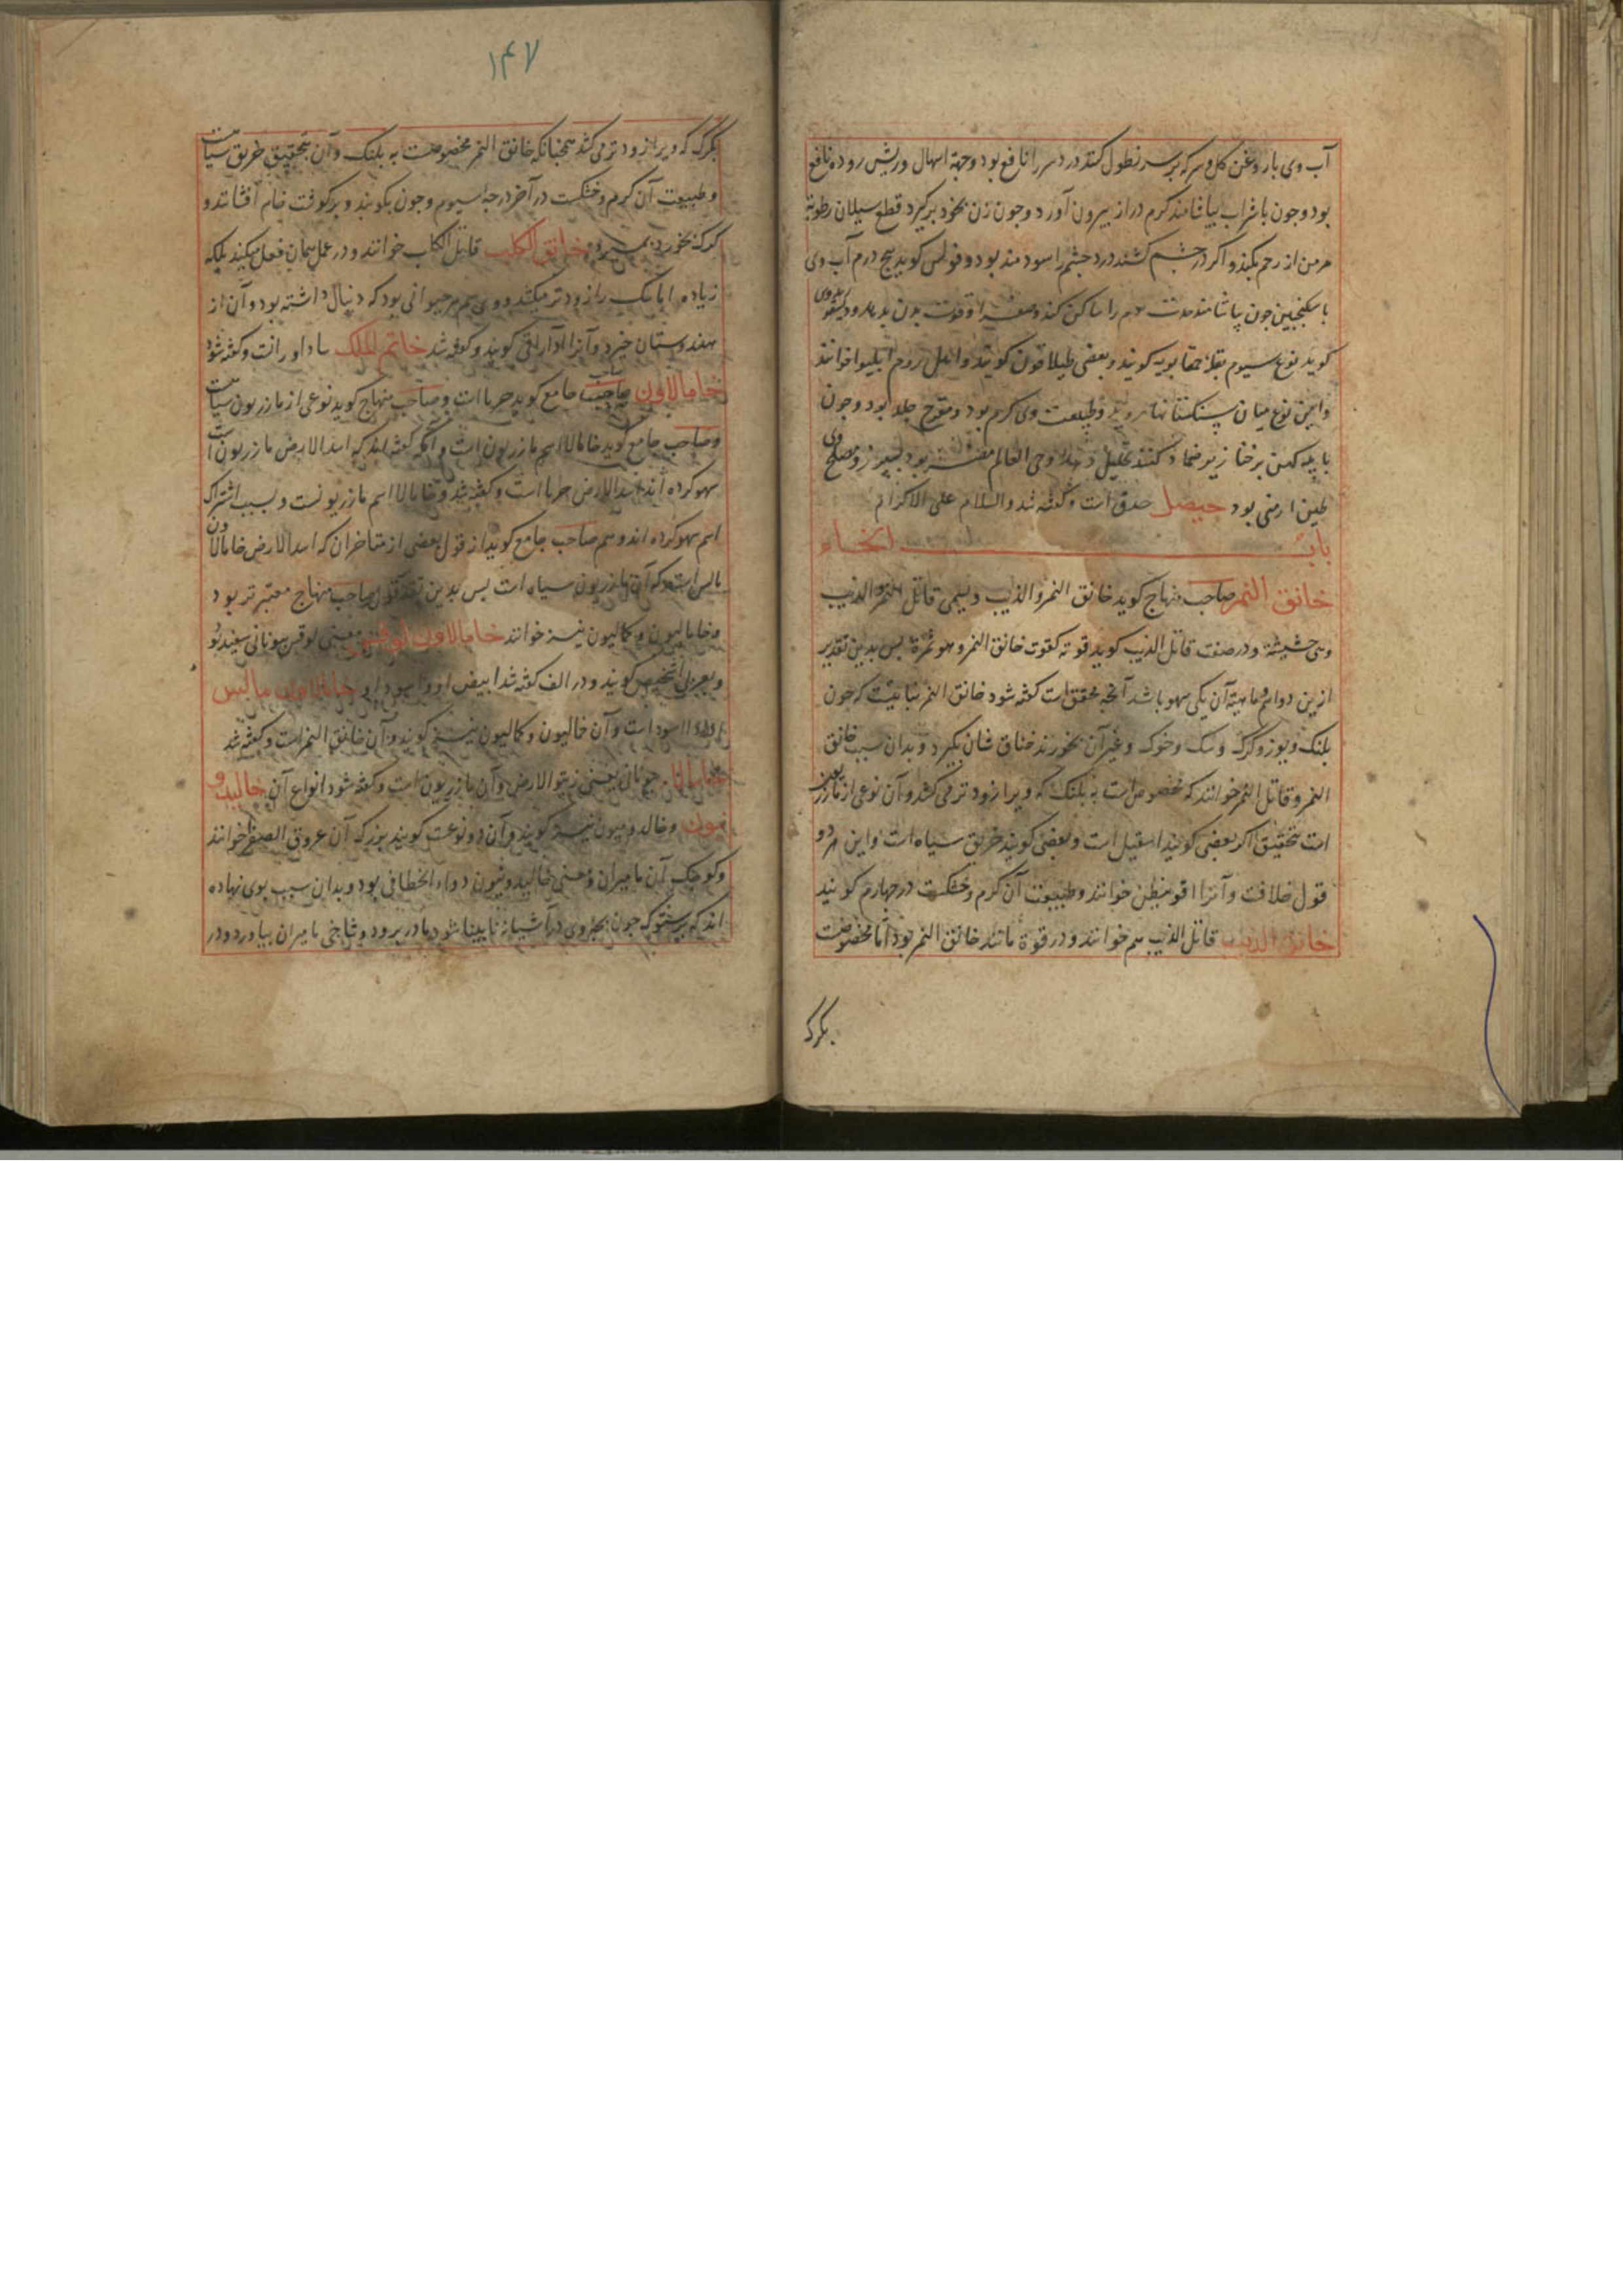 آب وی با روغن کل و سرکه بر سر نطول کنند درد سر را نافع بود و جهة اسهال و ریش روده نافع
بود و چون با شراب بیاشامند کرم دراز بیرون آورد و چون زن بخود برگیرد قطع سیلان رطوبة
مزمن از رحم بکند و اگر در چشم کشند درد چشم را سودمند بود و فولس کوید پنج درم آب وی
با سکنجبین چون بیاشامند را ساکن کند و قوت بدن بدهد و دیسقوریدوس
کوید نوع سیوم بقلة حمقا بریه کویند و بعضی طیلافون کویند و اهل روم ایلیوا خوانند
و این نوع میان سنکستانها روید و طبیعت وی کرم بود و مقرح جلد بود و چون
با پیه کهن بر خنازیر ضماد کنند تحلیل دهد و حی العالم مضر بود بسپرز و مصلح وی
طین ارمنی بود حیصل حدق است و کفته شد والسلام علی الاکرام
باب الخاء
خانق النمر صاحب منهاج کوید خانق النمر والذیب و یسمی قاتل النمر والذیب
وهی حشیشة و در صفت قاتل الذیب کوید قوته کقوت خانق النمر و هو ثمرة پس بدین تقدیر
ازین دوا و ماهیة آن یکی سهو باشد آنچه محقق است کفته شود خانق النمر نباتیست که چون
پلنک و یوز و کرک و سک و خوک و غیر آن بخورند خناق شان بکیرد و بدان سبب خانق
النمر و قاتل النمر خوانند که مخصوص است به پلنک که ویرا زودتر می کشد و آن نوعی از مازریون
است بتحقیق اکر بعضی کویند اسقیل است و بعضی کویند خربق سیاه است و این هر دو
قول خلافت و آنرا اقونیطن خوانند و طبیعت آن کرم و خشکست در چهارم کویند
خانق الذیب قاتل الذیب هم خوانند و در قوة مانند خانق النمر بود اما مخصوصست
بکرک
۱۴۷
بکرک که ویرا زودتر می کشد همچنانکه خانق النمر مخصوصست به پلنک و آن بتحقیق خربق سیاست
و طبیعت آن کرم و خشکست در آخر درجه سیوم و چون بکوبند و بر کوفت خام افشانند و
کرک بخورد بمیرد خانق الکلب قاتل الکلب خوانند و در عمل همان فعل میکند بلکه
زیاده اما سک را زودتر میکشد و وی سم هر حیوانی بود که دنبال داشته بود و آن از
هندوستان خیزد و آنرا اداراقی کویند و کفته شد خاتم الملک ساداوران است و کفته شود
خامالاون صاحب جامع کوید حربا است و صاحب منهاج کوید نوعی از مازریون سیاست
و صاحب جامع کوید خامالا اسم مازریون است و آنکه کفته اند که اسد الارض مازریون است
سهو کرده اند اسد الارض حربا است و کفته شد و خامالا اسم مازریونست و بسبب اشتراک
اسم سهو کرده اند و هم صاحب جامع کوید از قول بعضی از متاخران که اسد الارض خامالاون
مالس است که آن مازریون سیاه است پس بدین تقدیر قول صاحب منهاج معتبرتر بود
و خامالیون و کمالیون نیز خوانند خامالاون لوقس معنی لوقس بیونانی سفید بود
و بعربی اشخیص کویند و در الف کفته شد ابیض او و اسود او خامالاون مالس
اسود است و آن خالیون و کمالیون نیز کویند و آن خانق النمر است و کفته شد
خامالا بیونانی یعنی زیتو الارض و آن مازریون است و کفته شود انواع آن خالیدو
نیون و خالدومیون نیز کویند و آن دو نوعست کویند بزرک آن عروق الصفر خوانند
و کوچک آن مامیران و معنی خالیدونیون دواء الخطافی بود و بدان سبب بوی نهاده
اند که پرستوک چون بچه وی در آشیانه نابینا شود مادر برود و شاخی مامیران بیاورد و در